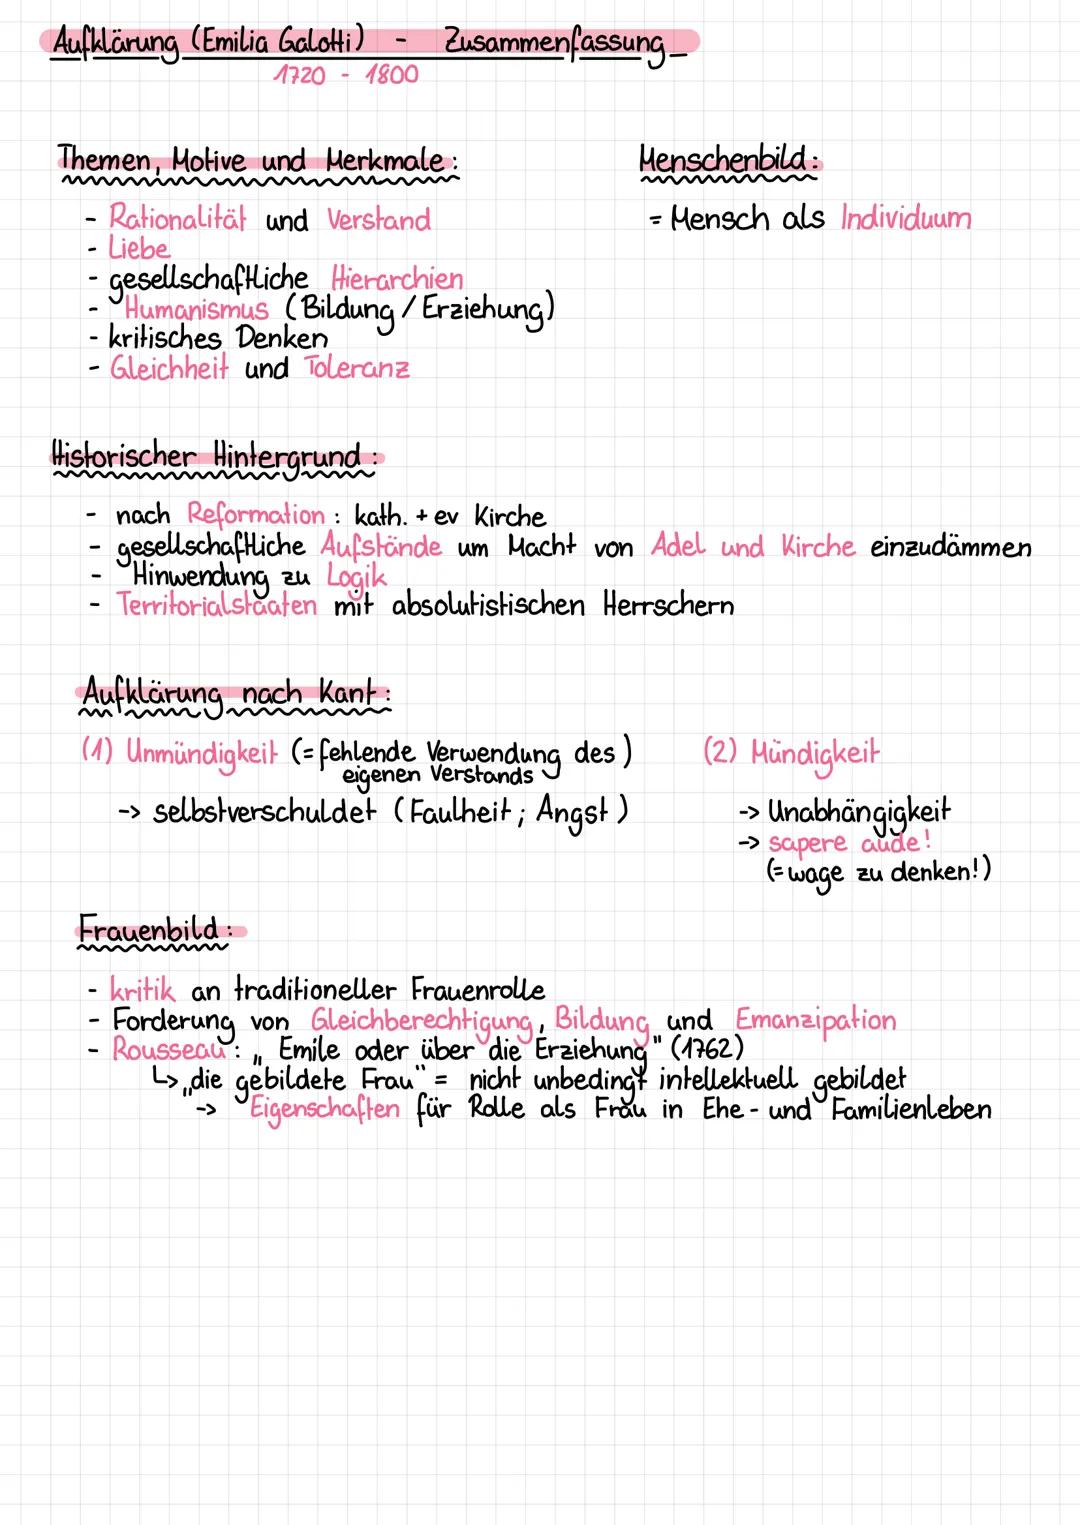 Aufklärung (Emilia Galotti) - Zusammenfassung
1720 - 1800
Themen, Motive und Merkmale:
- Rationalität und Verstand
- Liebe
- gesellschaftliche Hierarchien
- Humanismus (Bildung / Erziehung)
- kritisches Denken
- Gleichheit und Toleranz
Menschenbild:
= Mensch als Individuum
Historischer Hintergrund:
- nach Reformation: kath. + ev Kirche
- gesellschaftliche Aufstände um Macht von Adel und Kirche einzudämmen
- Hinwendung zu Logik
- Territorialstaaten mit absolutistischen Herrschern
Aufklärung nach Kant:
(1) Unmündigkeit (= fehlende Verwendung des)
eigenen Verstands
-> selbstverschuldet (Faulheit; Angst)
(2) Mündigkeit
-> Unabhängigkeit
-> sapere aude!
(= wage zu denken!)
Frauenbild:
- kritik an traditioneller Frauenrolle
- Forderung von Gleichberechtigung, Bildung und Emanzipation
- Rousseau: „Emile oder über die Erziehung" (1762)
↳ „die gebildete Frau" = nicht unbedingt intellektuell gebildet
-> Eigenschaften für Rolle als Frau in Ehe- und Familienleben